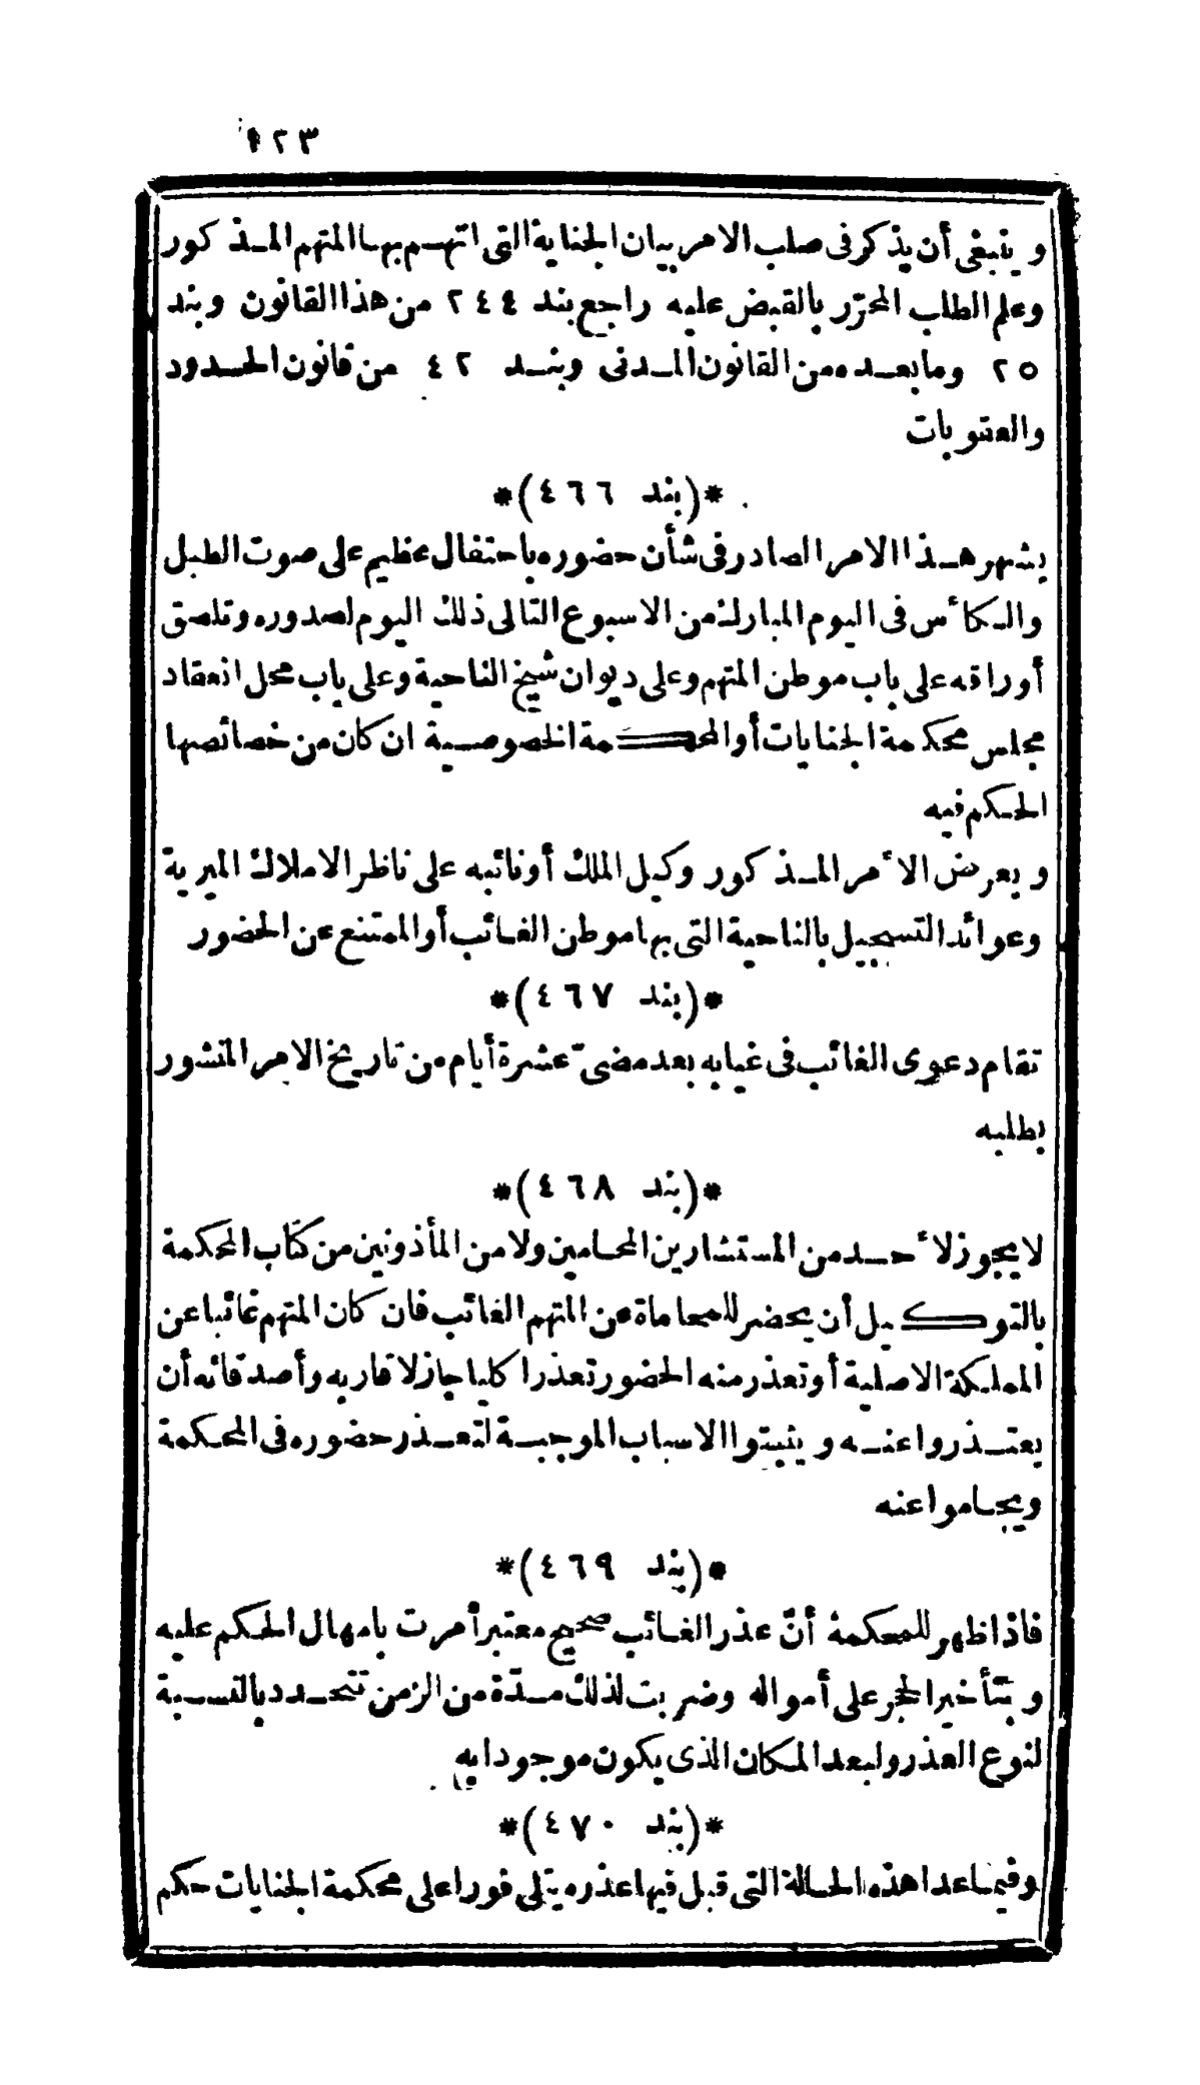 ١٢٣
وينبغى أن يذكر فى صلب الامر بيان الجناية التى اتهم بها المتهم المذكور
وعلم الطلب المحرّر بالقبض عليه راجع بند ٢٤٤ من هذا القانون وبند
٢٥ وما بعده من القانون المدنى وبند ٤٢ من قانون الحدود
والعقوبات
*(بند ٤٦٦)*
يشهر هذا الامر الصادر فى شأن حضوره باحتفال عظيم على صوت الطبل
والكأس فى اليوم المبارك من الاسبوع التالى ذلك اليوم لصدوره وتلصق
أوراقه على باب موطن المتهم وعلى ديوان شيخ الناحية وعلى باب محل انعقاد
مجلس محكمة الجنايات أو المحكمة الخصوصية ان كان من خصائصها
الحكم فيه
ويعرض الأمر المذكور وكيل الملك أو نائبه على ناظر الاملاك الميرية
وعوائد التسجيل بالناحية التى بها موطن الغائب أو الممتنع عن الحضور
*(بند ٤٦٧)*
تقام دعوى الغائب فى غيابه بعد مضىّ عشرة أيام من تاريخ الامر المنشور
بطلبه
*(بند ٤٦٨)*
لا يجوز لأحد من المستشارين المحامين ولا من المأذونين من كتّاب المحكمة
بالتوكيل أن يحضر للمحاماة عن المتهم الغائب فان كان المتهم غائبا عن
المملكة الاصلية أو تعذر منه الحضور تعذرا كليا جاز لاقاربه وأصدقائه أن
يعتذروا عنه ويثبتوا الاسباب الموجبة لتعذر حضوره فى المحكمة
ويحاموا عنه
*(بند ٤٦٩)*
فاذا ظهر للمحكمة أنّ عذر الغائب صحيح معتبر أمرت بامهال الحكم عليه
وبتأخير الحجر على أمواله وضربت لذلك مدّة من الزمن تتحدد بالنسبة
لنوع العذر ولبعد المكان الذى يكون موجودا به
*(بند ٤٧٠)*
وفيما عدا هذه الحالة التى قبل فيها عذره يتلى فورا على محكمة الجنايات حكم